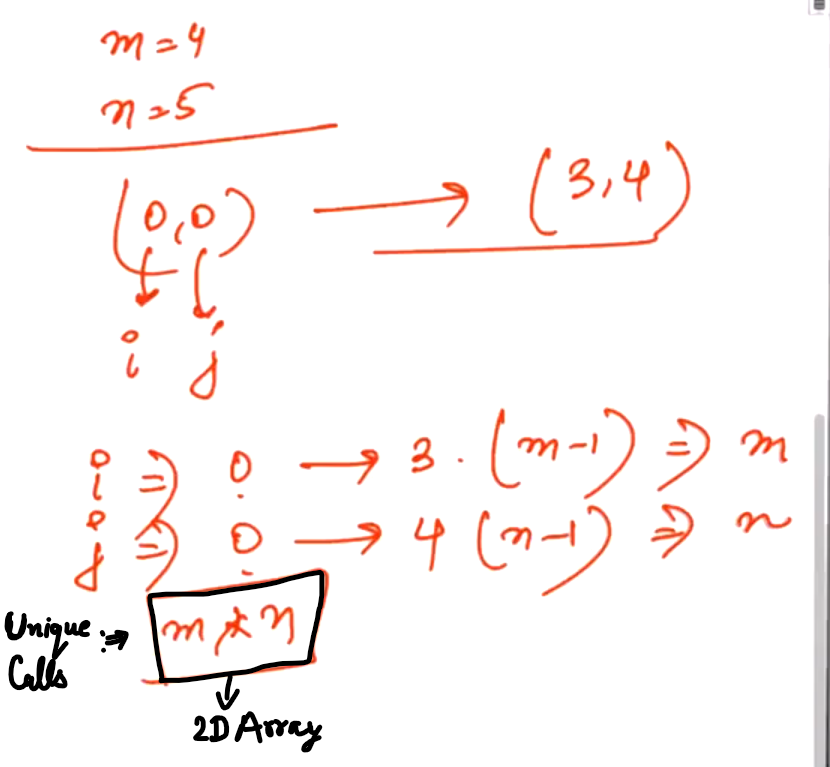 m=4
n=5
(0,0) → (3,4)
i j
i ⇒ 0 → 3. (m-1) ⇒ m
j ⇒ 0 → 4 (n-1) ⇒ n
Unique Calls :⇒ m * n
2D Array